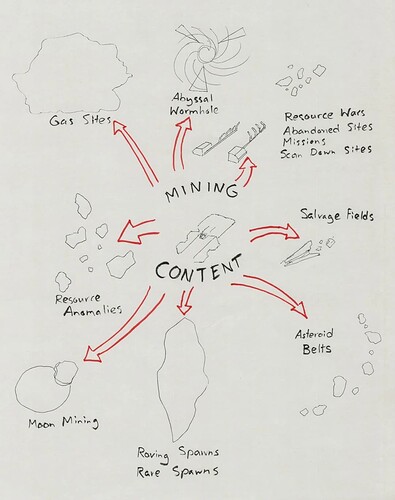 Gas Sites
Abyssal
Wormhole
Resource Wars
Abandoned Sites
Missions
Scan Down Sites
MINING
Salvage Fields
CONTENT
Resource
Anomalies
Asteroid
Belts
Moon Mining
Roving Spawns
Rare Spawns